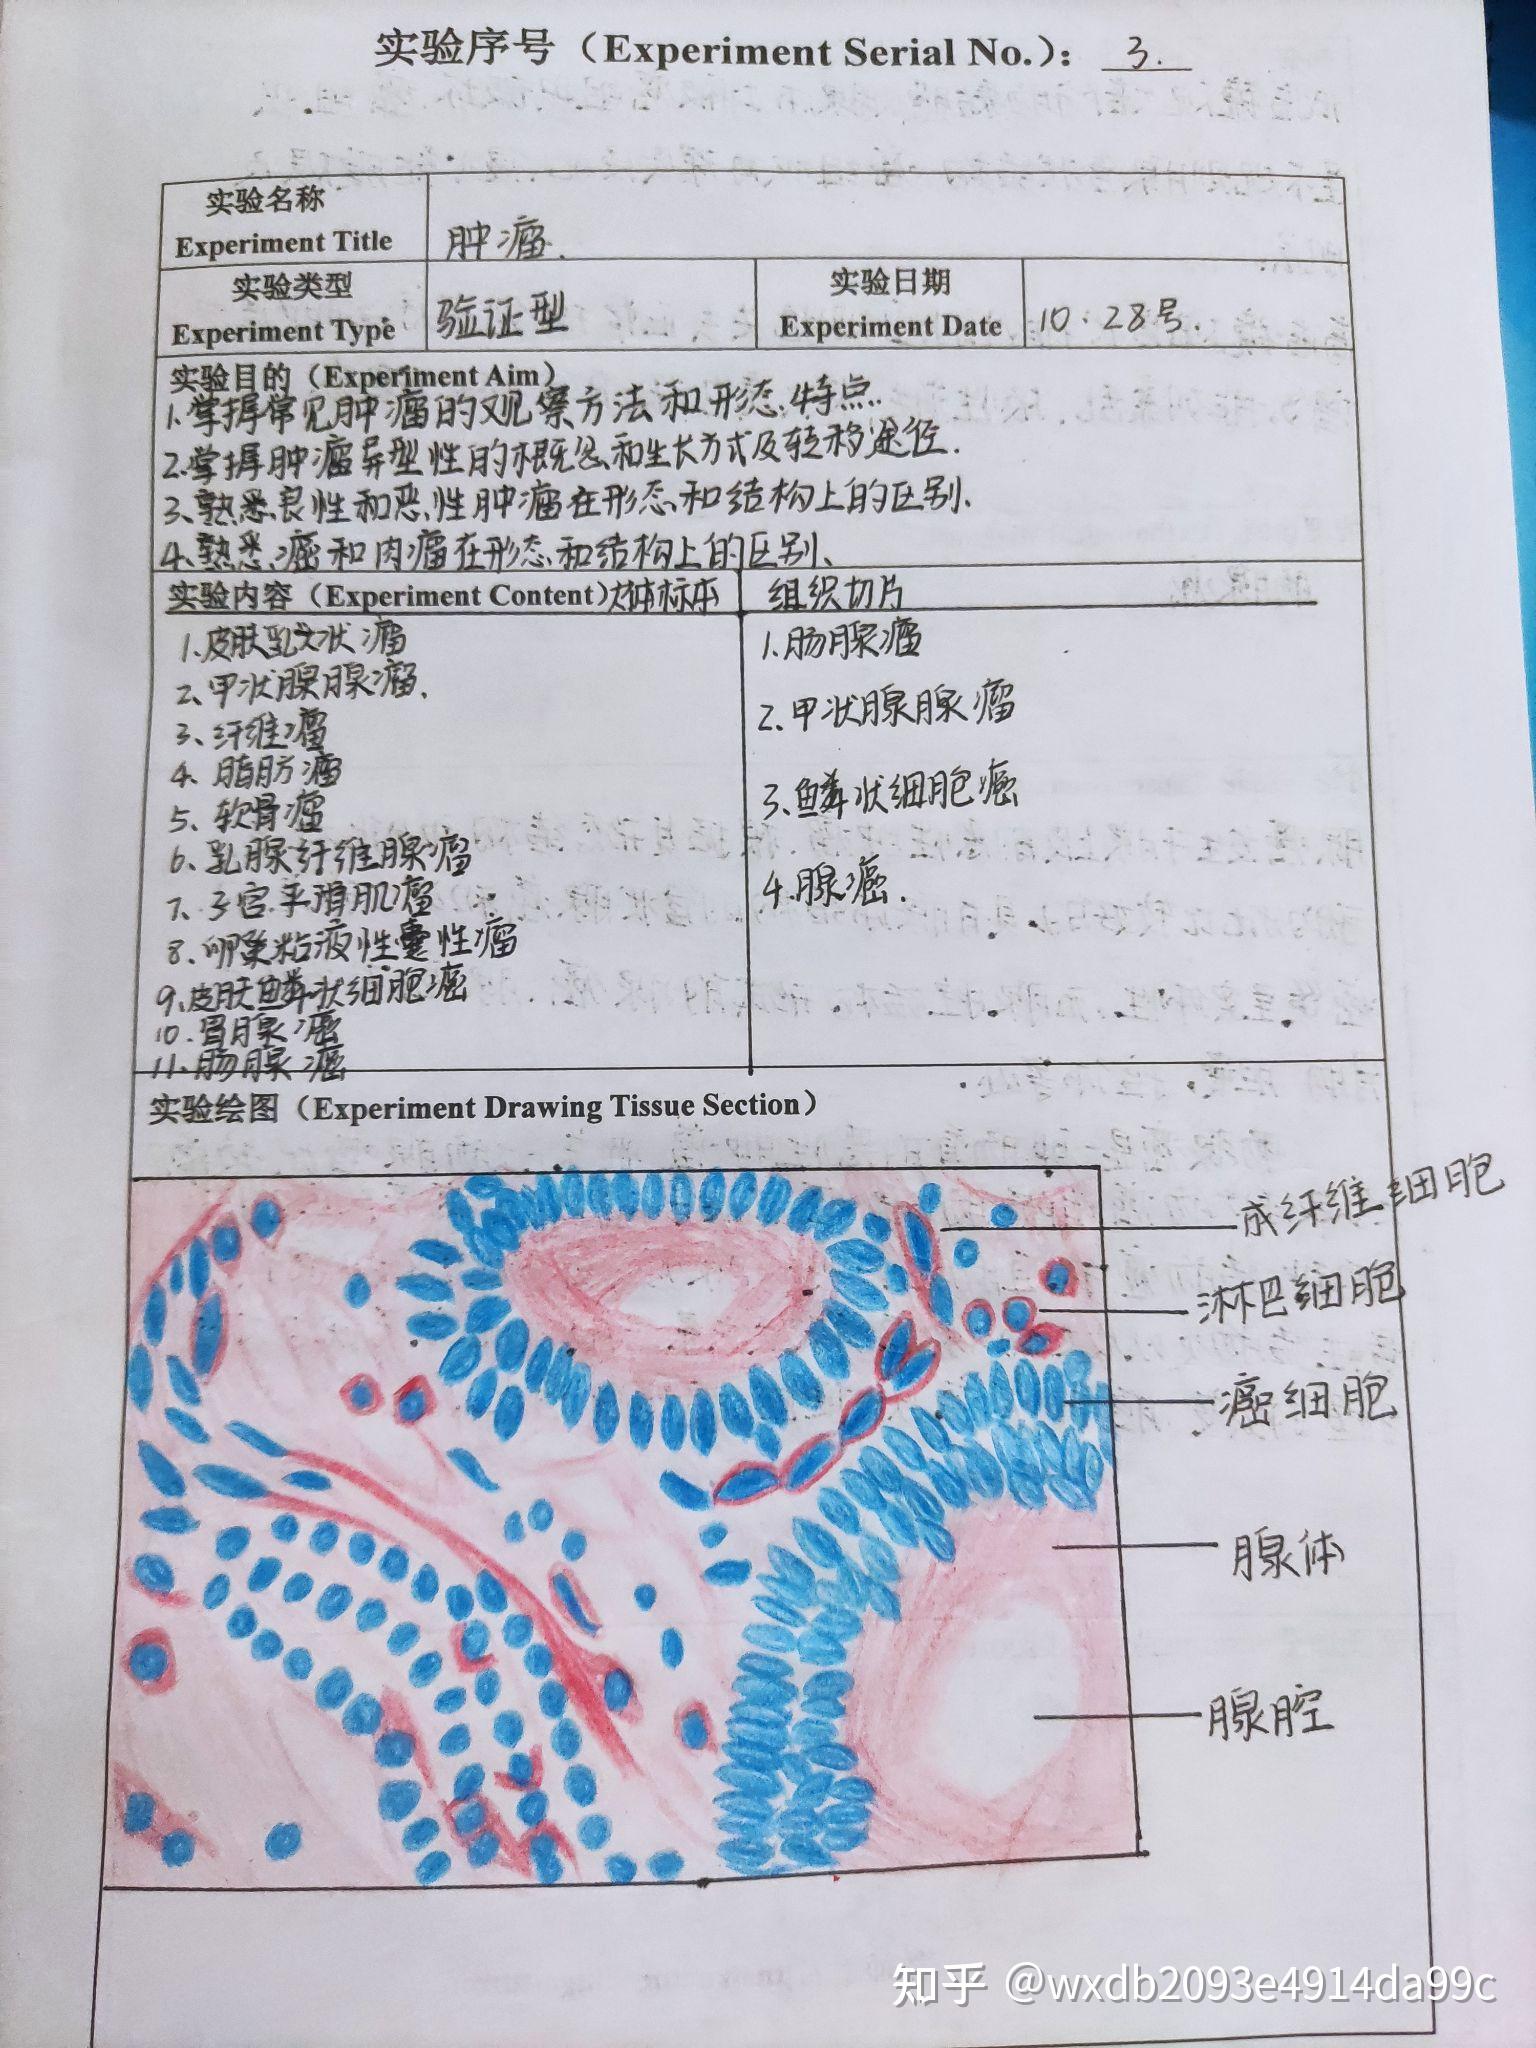 实验序号（Experiment Serial No.）: 3.
实验名称
Experiment Title
肿瘤.
实验类型
Experiment Type
验证型
实验日期
Experiment Date
10.28号.
实验目的（Experiment Aim）
1.掌握常见肿瘤的观察方法和形态特点.
2.掌握肿瘤异型性的概念和生长方式及转移途径.
3、熟悉良性和恶性肿瘤在形态和结构上的区别.
4.熟悉癌和肉瘤在形态和结构上的区别、
实验内容（Experiment Content）大体标本
组织切片
1.皮肤乳头状瘤
2、甲状腺腺瘤.
3、纤维瘤
4、脂肪瘤
5、软骨瘤
6、乳腺纤维腺瘤
7、子宫平滑肌瘤
8、卵巢粘液性囊性瘤
9、皮肤鳞状细胞癌
10.胃腺癌
11.肠腺癌
1.肠腺瘤
2.甲状腺腺瘤
3、鳞状细胞癌
4.腺癌.
实验绘图（Experiment Drawing Tissue Section）
成纤维细胞
淋巴细胞
癌细胞
腺体
腺腔
知乎 @wxdb2093e4914da99c